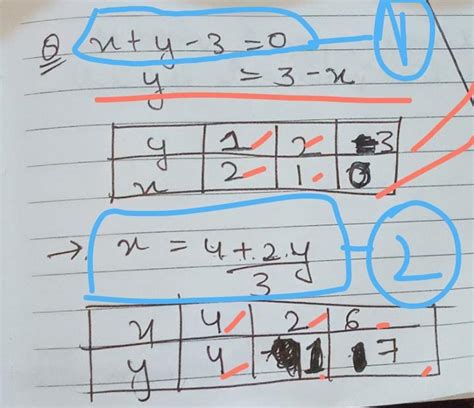 Q x + y - 3 = 0 1
y = 3 - x
y 1 2 3
x 2 1 0
→ x = 4 + 2.y / 3 2
x 4 2 6
y 4 1 7